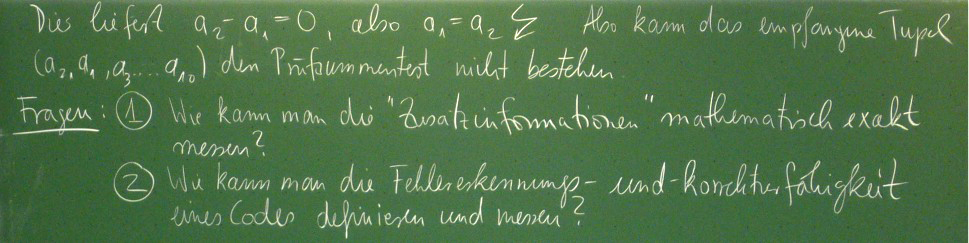 Dies liefert a₂ - a₁ = 0, also a₁ = a₂ ↯ Also kann das empfangene Tupel
(a₂, a₁, a₃.... a₁₀) den Prüfsummentest nicht bestehen.
Fragen: ① Wie kann man die "Zusatzinformationen" mathematisch exakt
messen?
② Wie kann man die Fehlererkennungs- und -korrekturfähigkeit
eines Codes definieren und messen?